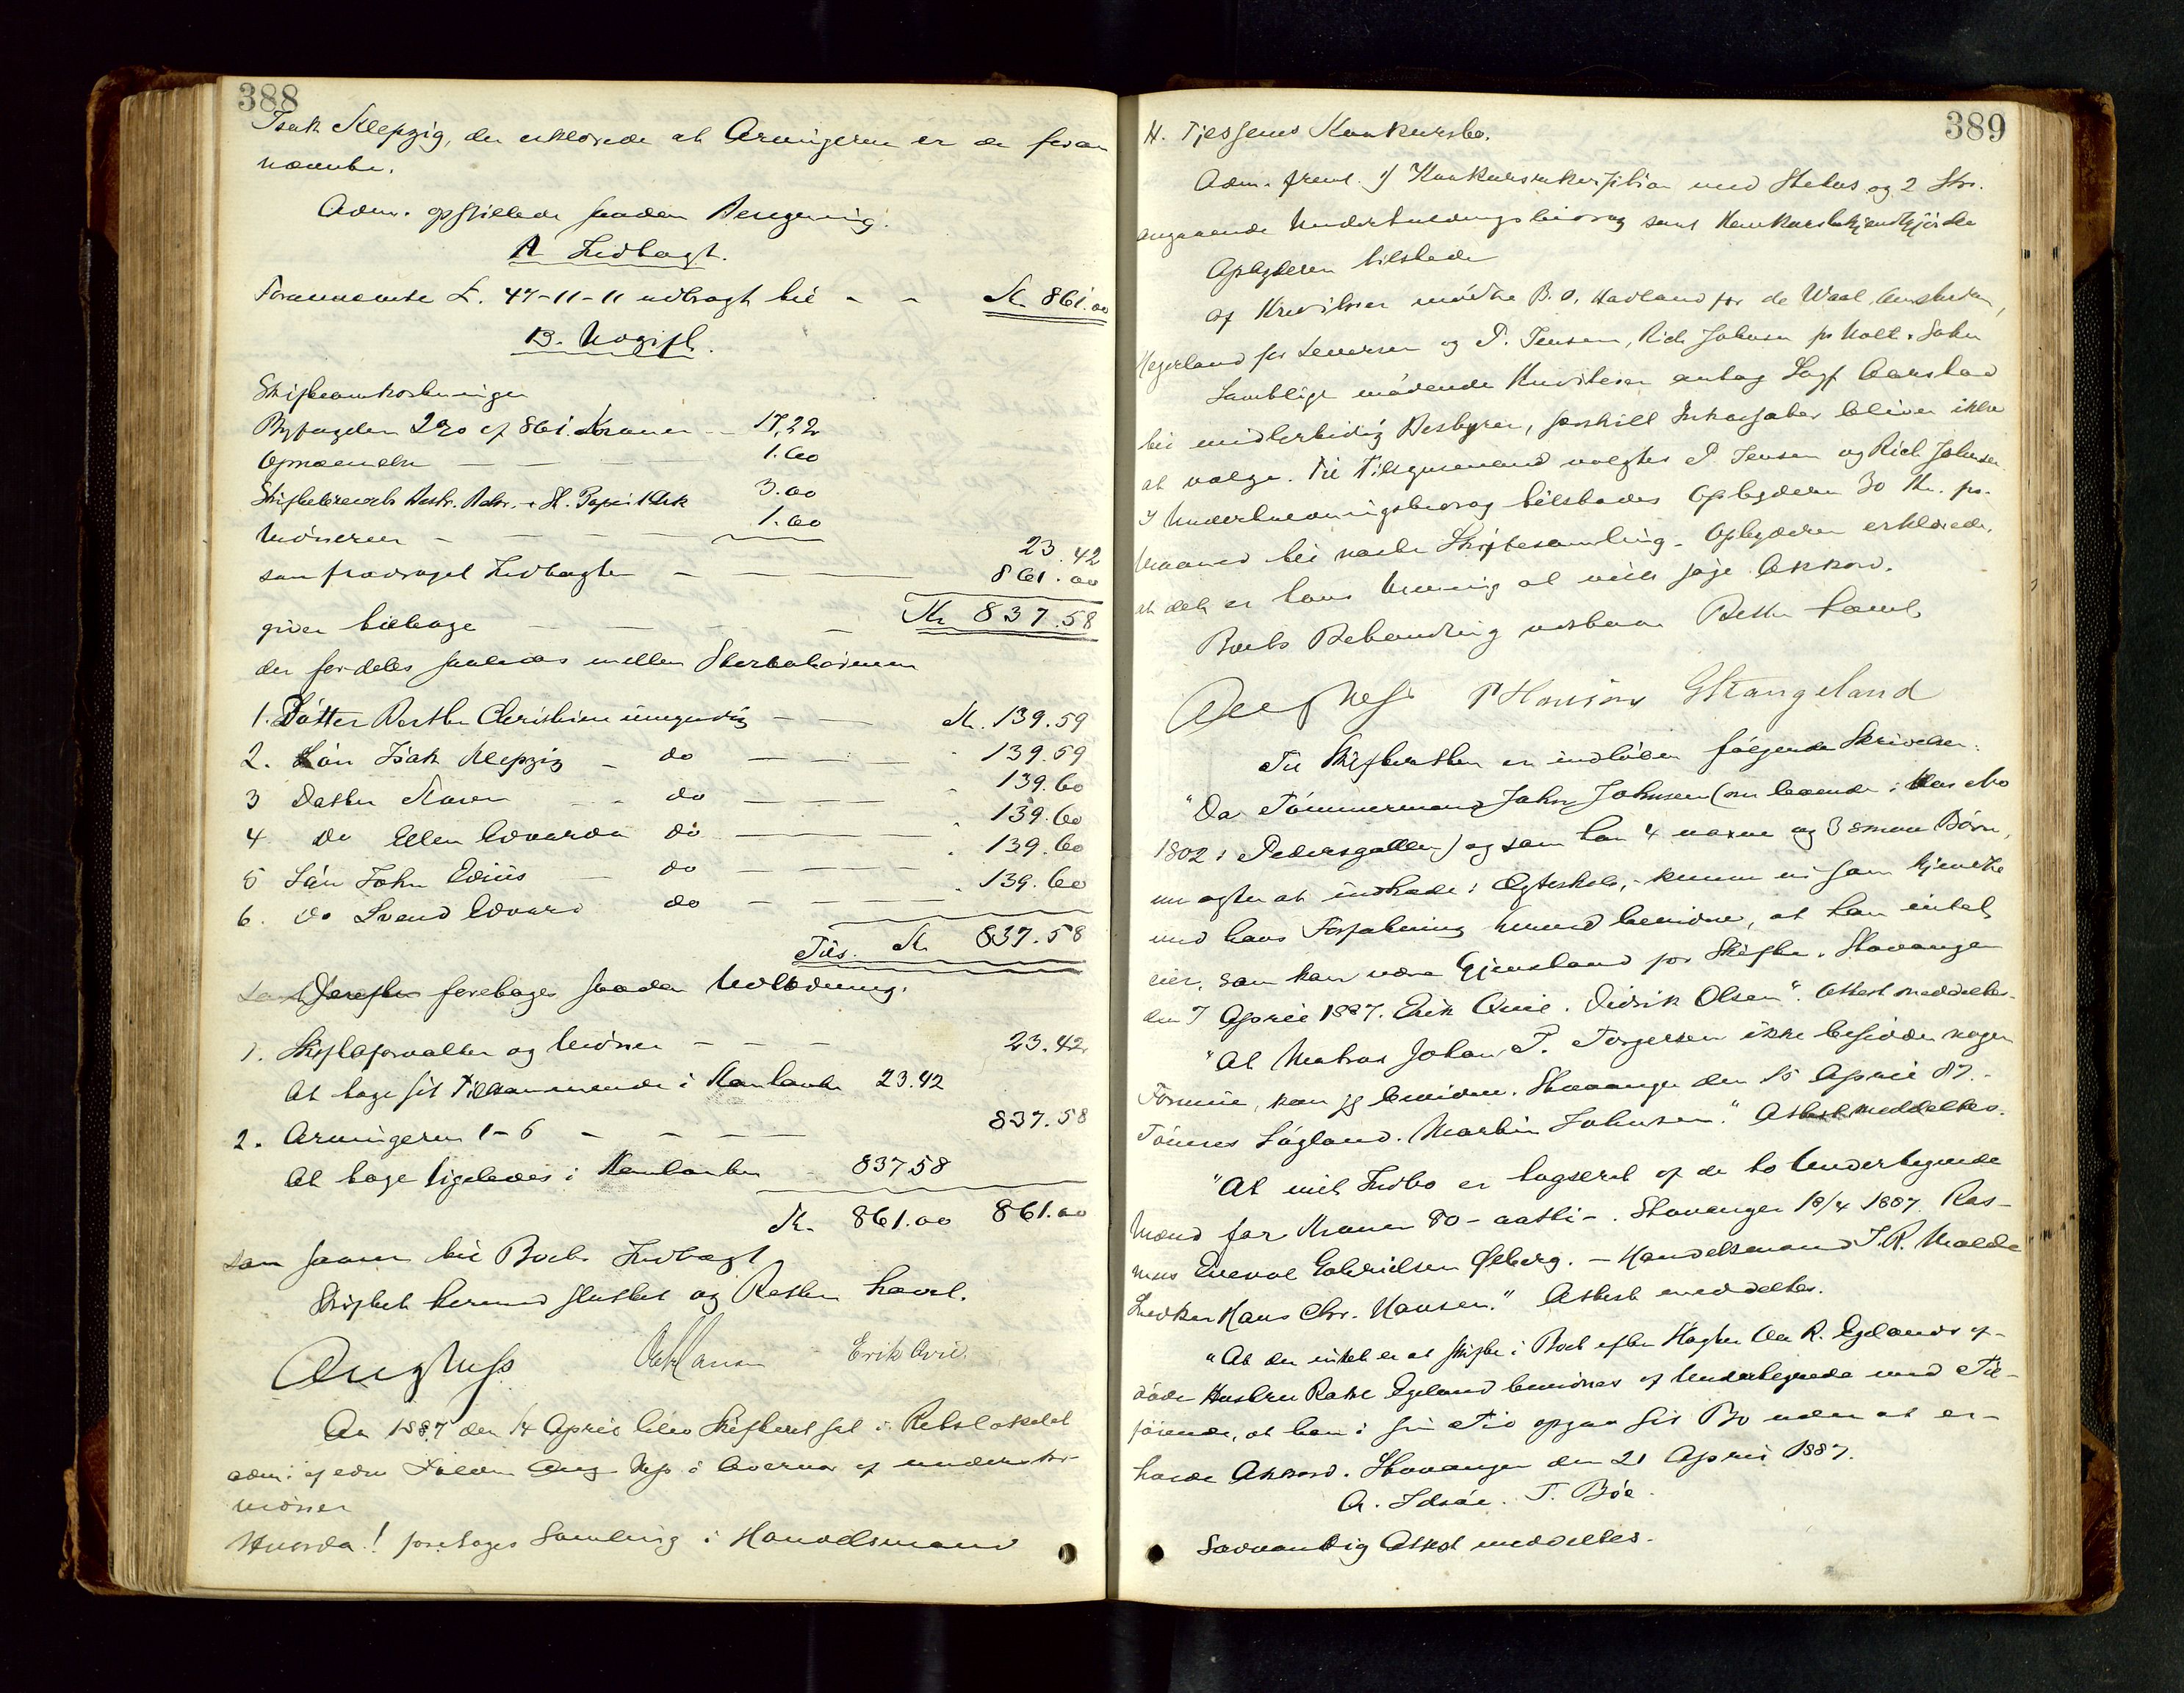 388
Isak Klepzig, der erklærede at Arvingerne er de foran
nævnte.
Adm. opstillede saaden Beregning.
A Indtægt.
Forannævnte £. 47-11-11 udbragt til - - Kr 861.00
B. Udgift.
Skifteomkostninger
Byfogden 2% af 861. Kroner - 17,22
Opnævnelse - - - 1.00
Skiftebrevets Beskr. 3.00
Vidnerne - - - - 1.00
23.42
som fradraget Indtægten - - - 861.00
giver tilbage - - - - Kr 837.58
der fordeles saaledes mellem
1. Datter Christine umyndig - - Kr. 139.59
2. Søn Isak Klepzig - do - - - 139.59
3 Datter Karen - - do - - - 139.60
4 Do Ellen Edvarda do - - - 139.60
5 Søn John Edvis - do - - - 139.60
6. do Svend Edvard do - - - 139.60
Tils. Kr 837.58
Derefter foretages saaden Udlodning.
1. Skifteforvalter og Vidner - - - 23.42
At tage sit Tilkommende i Kontanter 23.42
2. Arvingerne 1-6 - - - - 837.58
At tage ligeledes i Kontanter - 837.58
Kr. 861.00 861.00
som svarer til Boets Indtægt
Skiftet hermed sluttet og Retten hævet.
Aug Ness O Hansen Erik Qvie
Aar 1887 den 14 April blev Skifteret sat i Retslokalet
adm: af edsv Fuldm Aug Ness i Overvær af underskr-
Vidner
Hvorda! foretoges Samling i Handelsmand
389
H. Tjessems Konkursbo.
Adm. freml. 1) Konkursrekvisition med Status og 2 Skr.
angaaende Underholdningsbidrag samt Konkursbekjendtgjørelse
Opbyderen tilstede
Af Kreditorer mødte B. O. Hadland for de Waal, Amsterdam,
Hegerland for og P. Jensen, Rich Johnsen for Holt.
Samtlige mødende Kreditorer antog Sagf Aarstad
til midlertidig Bestyrer, særskilt Inkassator bliver ikke
at vælge. Til Tilsynsmænd valgtes P. Jensen og Rich Johnsen.
I Underholdningsbidrag tilstodes Opbyderen 30 Kr. pr.
Maaned til næste Skiftesamling. Opbyderen erklærede,
at det er hans Mening at ville søge Akkord.
Boets Behandling udstaar Retten hævet
Aug Ness P Hansen G Skangeland
Til Skifteretten er indløben følgende Skrivelser:
"Da Tømmermand John Johnsen (nu boende i Hus No
1802 i Pedersgaden) og som har 4 voxne og 3 smaa Børn,
nu agter at indtræde i Ægteskab, - kunne vi som kjendte
med hans Forfatning hermed bevidne, at han intet
eier, som kan være Gjenstand for Skifte. Stavanger
den 7 April 1887. Erik Qvie. Didrik Olsen". Attest meddeltes.
"At Matros Johan P. Torgersen ikke besidder nogen
Formue, kan jeg bevidne. Stavanger den 15 April 87.-
Tønnes Løgland. Martin Johnsen." Attest meddeltes.
"At mit Indbo er taxeret af de to Undertegnede
Mænd for Kroner 80 - aatti - . Stavanger 18/4 1887. Ras-
mus Gabrielsen Østberg. - Handelsmand T. R. Malde
Snedker Hans Chr. Hansen." Attest meddeltes.
"At der intet er at skifte i Boet efter R. Egelands af-
døde Hustru Egeland bevidnes af Undertegnede med Til-
føiende, at han i sin Tid opgav sit Bo uden at er-
holde Akkord. Stavanger den 21 April 1887.
A. Idsøe. T. Bøe.
Sædvanlig Attest meddeltes.